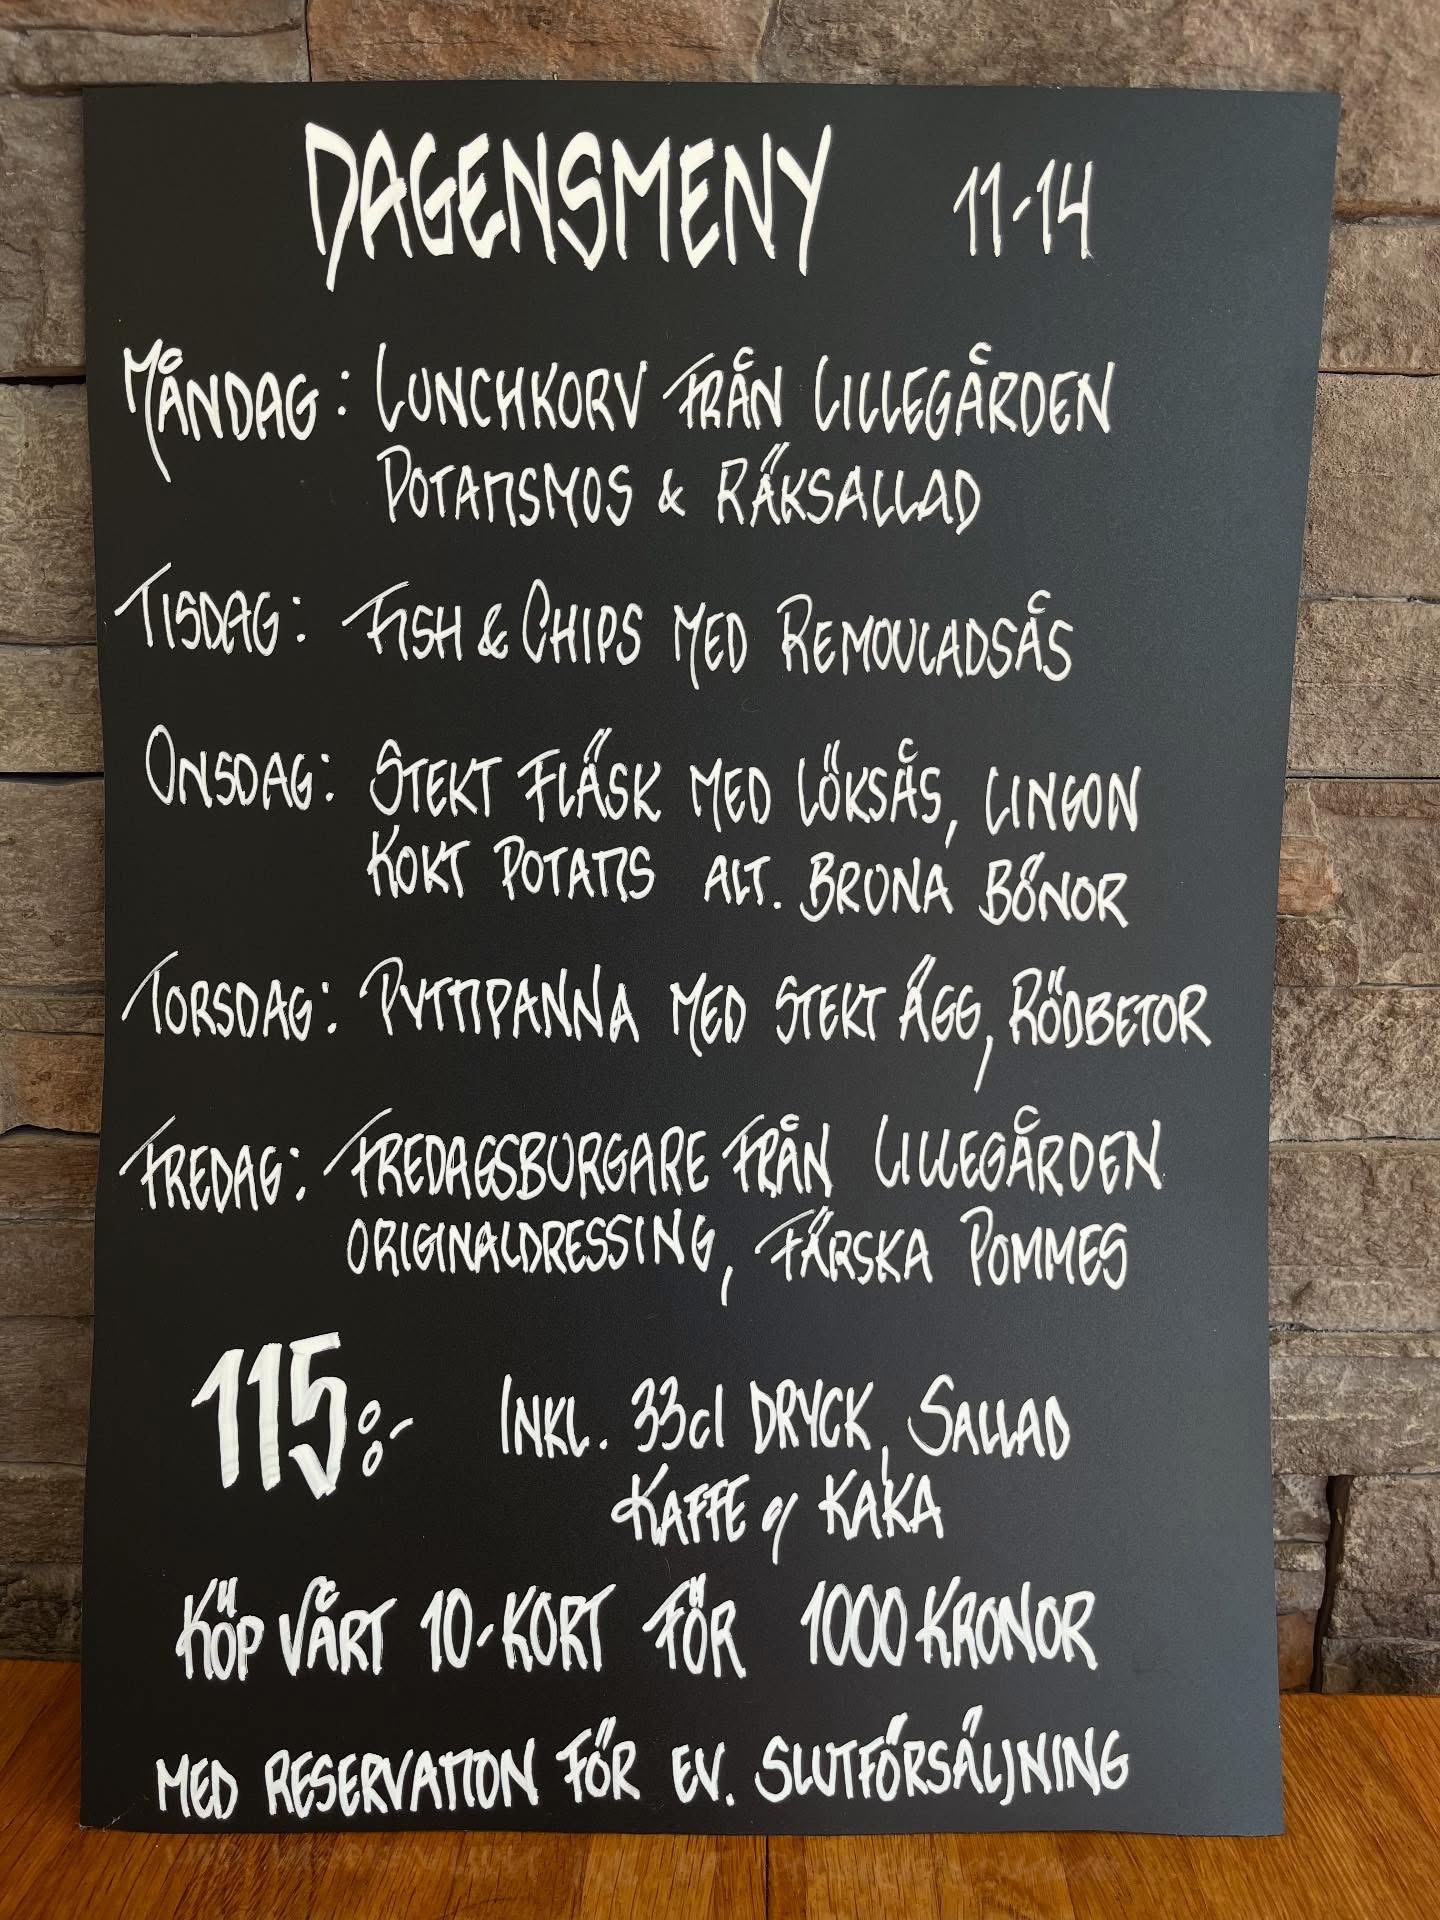 DAGENSMENY 11-14
MÅNDAG: LUNCHKORV FRÅN LILLEGÅRDEN
POTATISMOS & RÄKSALLAD
TISDAG: FISH & CHIPS MED REMOULADSÅS
ONSDAG: STEKT FLÄSK MED LÖKSÅS, LINGON
KOKT POTATIS ALT. BRUNA BÖNOR
TORSDAG: PYTTIPANNA MED STEKT ÄGG, RÖDBETOR
FREDAG: FREDAGSBURGARE FRÅN LILLEGÅRDEN
ORIGINALDRESSING, FÄRSKA POMMES
115:- INKL. 33cl DRYCK, SALLAD
KAFFE o/ KAKA
KÖP VÅRT 10-KORT FÖR 1000 KRONOR
MED RESERVATION FÖR EV. SLUTFÖRSÄLJNING